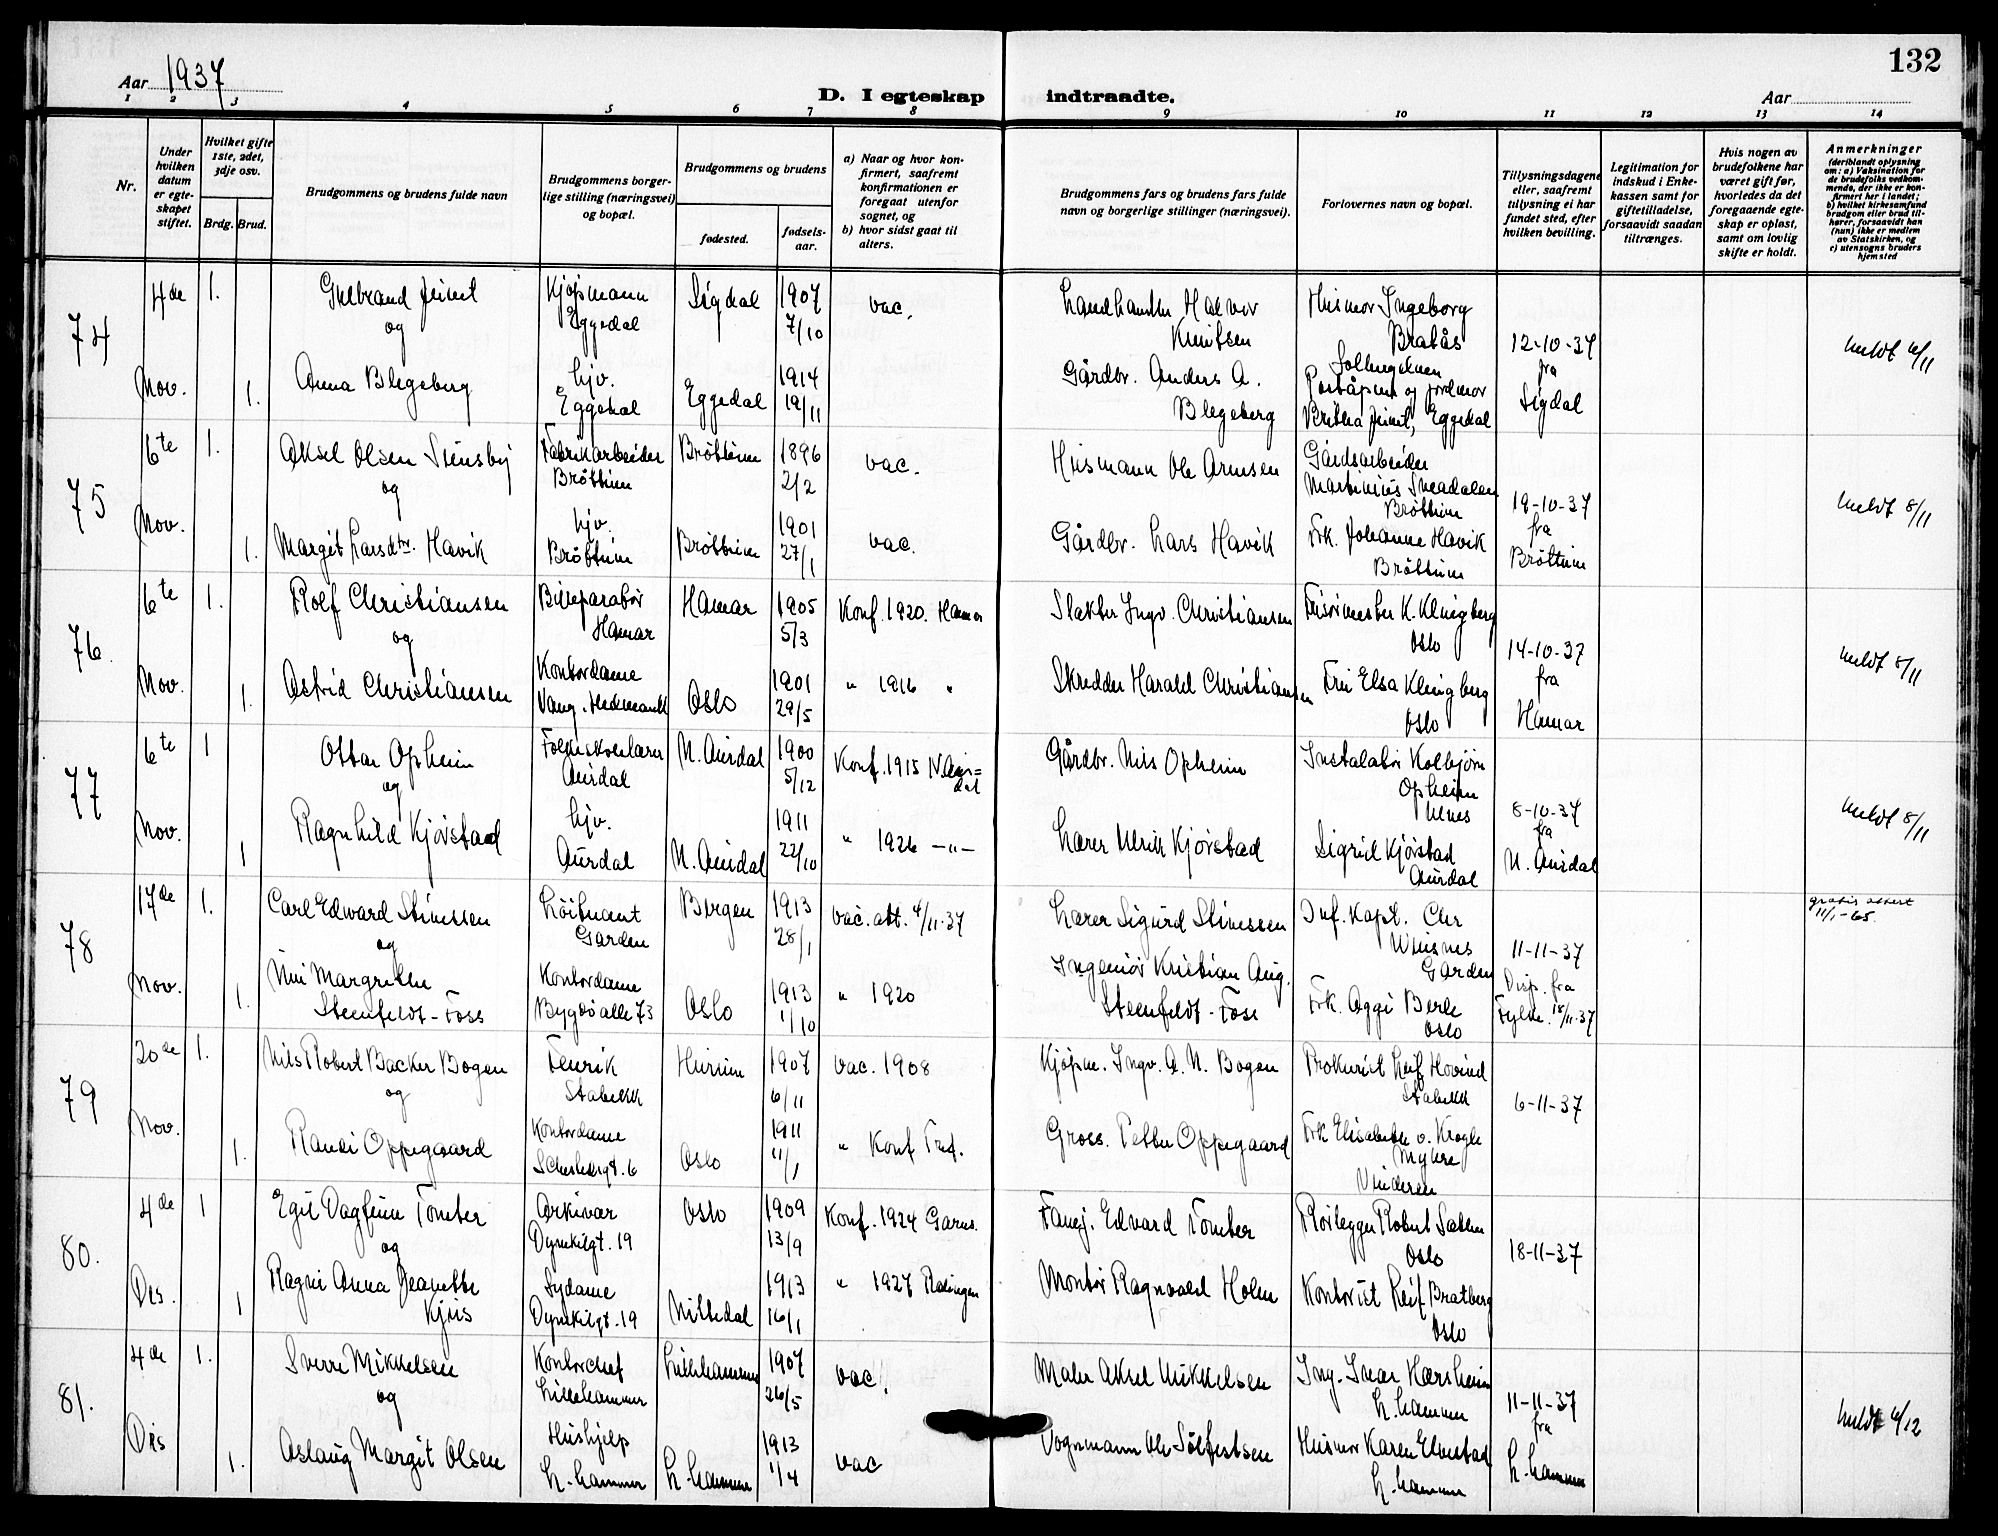 132
Aar 1937
D. I egteskap indtraadte.
Aar
1 2 3 4 5 6 7 8 9 10 11 12 13 14
Nr.
Under hvilken datum er egte-skapet stiftet.
Hvilket gifte 1ste, 2det, 3dje osv.
Brdg. Brud.
Brudgommens og brudens fulde navn
Brudgommens borger-lige stilling (næringsvei) og bopæl.
Brudgommens og brudens
fødested.
fødsels-aar.
a) Naar og hvor kon-firmert, saafremt konfirmationen er foregaat utenfor sognet, og
b) hvor sidst gaat til alters.
Brudgommens fars og brudens fars fulde navn og borgerlige stillinger (næringsvei).
Forlovernes navn og bopæl.
Tillysningsdagene eller, saafremt tillysning ei har fundet sted, efter hvilken bevilling.
Legitimation for indskud i Enke-kassen samt for giftetilladelse, forsaavidt saadan tiltrænges.
Hvis nogen av brudefolkene har været gift før, hvorledes da det foregaaende egte-skap er opløst, samt om lovlig skifte er holdt.
Anmerkninger
(deriblandt oplysning om: a) Vaksination for de brudefolks vedkom-mende, der ikke er kon-firmert her i landet, b) hvilket kirkesamfund brudgom eller brud til-hører, forsaavidt han (hun) ikke er medlem av Statskirken, og c) utensogns bruders hjemsted
74
4de 1. Gulbrand Juvet Kjøpmann Sigdal 1907 vac. Landhandler Halvor Husmor Ingeborg
og Eggedal 7/10 Knutsen Bratås
12-10-37
fra
Sigdal
meldt 6/11
Nov. 1. Anna Blegeberg hjv. Eggedal 1914 Gårdbr. Anders A.
Eggedal 19/11 Blegeberg Eggedal
75
6te 1. Aksel Olsen Stensby Fabrikarbeider Brøttum 1896 vac. Husmann Ole Arnesen Gårdsarbeider
og Brøttum 2/2 Martinius Sveadalen
Brøttum
19-10-37
fra
Brøttum
meldt 8/11
Nov. 1. Margit Larsdtr. Havik hjv. Brøttum 1901 vac. Gårdbr. Lars Havik Frk. Johanne Havik
Brøttum 27/1 Brøttum
76.
6te 1. Rolf Christiansen Bilreparatør Hamar 1905 Konf. 1920. Hamar Slakter Ingv. Christiansen Frisørmester K. Klingberg
og Hamar 5/3 Oslo
14-10-37
fra
Hamar
meldt 8/11
Nov. 1. Astrid Christiansen Kontordame Oslo 1901 " 1916 " Skredder Harald Christiansen Fru Elsa Klingberg
Vang. Hedmark 29/5 Oslo
77
6te 1 Ottar Opheim Folkeskolelærer N. Aurdal 1900 Konf. 1915 N. Aur=dal Gårdbr. Nils Opheim Instalatør Kolbjørn
og Aurdal 5/12 Opheim
Ulnes
8-10-37
fra
N. Aurdal
meldt 8/11
Nov. 1 Ragnhild Kjørstad hjv. N. Aurdal 1911 " 1926 -"- Lærer Ulrik Kjørstad Sigrid Kjørstad
Aurdal 22/10 Aurdal
78
17de 1. Carl Edward Stinessen Løitnant Bergen 1913 vac. att. 4/11-37 Lærer Sigurd Stinessen Inf. Kapt. Chr
og Garden 28/1 Wiisnes
Garden
11-11-37
Disp. fra
Fylke. 18/11-37
gratis attest
11/1-65.
Nov. 1. Nini Margrethe Kontordame Oslo 1913 " 1920 Ingeniør Kristian Aug. Frk. Aggi Berle
Steenfeldt-Foss Bygdø alle 73 1/10 Steenfeldt-Foss Oslo
79
20de 1. Nils Robert Backer Bogen Fenrik Hurum 1907 vac. 1908 Kjøpm. Ingv. A. N. Bogen Prokurist Leif Hovind
og Stabekk 6/11 Stabekk
6-11-37
Nov. 1. Randi Oppegaard Kontordame Oslo 1911 " Konf Gross. Petter Oppegaard Frk Elisabeth v. Krogh
11/1 Myhre
Vinderen
80.
4de 1 Egil Dagfinn Tomter Arkivar Oslo 1909 Konf. 1924 Fanej. Edvard Tomter Rørlegger Robert
og Dynekilgt. 19 13/9 Oslo
18-11-37
Des. 1 Ragni Anna Jeanette Sydame Nittedal 1913 " 1927 Rælingen Montør Ragnvald Holm Kontorist Leif Bratberg
Kjus Dynekilgt. 19 16/1 Oslo
81.
4de 1. Sverre Mikkelsen Kontorchef Lillehammer 1907 vac. Maler Aksel Mikkelsen Ing. Ivar Hærsheim
og Lillehammer 26/5 L. hammer
11-11-37
fra
L. hammer
meldt 6/12
Des 1. Aslaug Margit Olsen Hushjelp L. hammer 1913 vac Vognmann Ole Sølfestsen Husmor Karen Elvestad
L. hammer 1/4 L. hammer